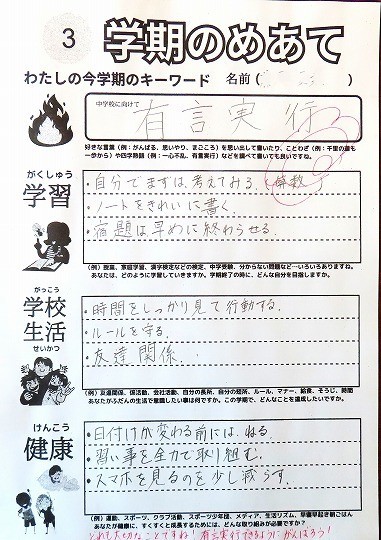 3 学期のめあて
わたしの今学期のキーワード 名前( )
中学校に向けて
有言実行
好きな言葉(例:がんばる、思いやり、まごころ)を思い出して書いたり、ことわざ(例:千里の道も
一歩から)や四字熟語(例:一心不乱、有言実行)などを調べて書いても良いですね。
がくしゅう
学習
・自分でまずは、考えてみる。(算数)
・ノートをきれいに書く。
・宿題は早めに終わらせる。
(例)授業、家庭学習、漢字検定などの検定、中学受験、分からない問題など…いろいろありますね。
あなたは、どのように学習していきますか。学期終了の時に、どんな自分を目指しますか。
がっこう
学校
生活
せいかつ
・時間をしっかり見て行動する。
・ルールを守る。
・友達関係。
(例)友達関係、係活動、会社活動、自分の長所、自分の短所、ルール、マナー、給食、そうじ、時間
あなたがふだんの生活で意識したい事は何ですか。この学期で、どんなことを達成したいですか。
けんこう
健康
・日付けが変わる前には、ねる。
・習い事を全力で取り組む。
・スマホを見るのを少し減らす。
(例)運動、スポーツ、クラブ活動、スポーツ少年団、メディア、生活リズム、早寝早起き朝ごはん
あなたが健康に、すくすくと成長するためには、どんな取り組みが必要ですか?
とても大切なことですね!有言実行できるようにがんばろう!